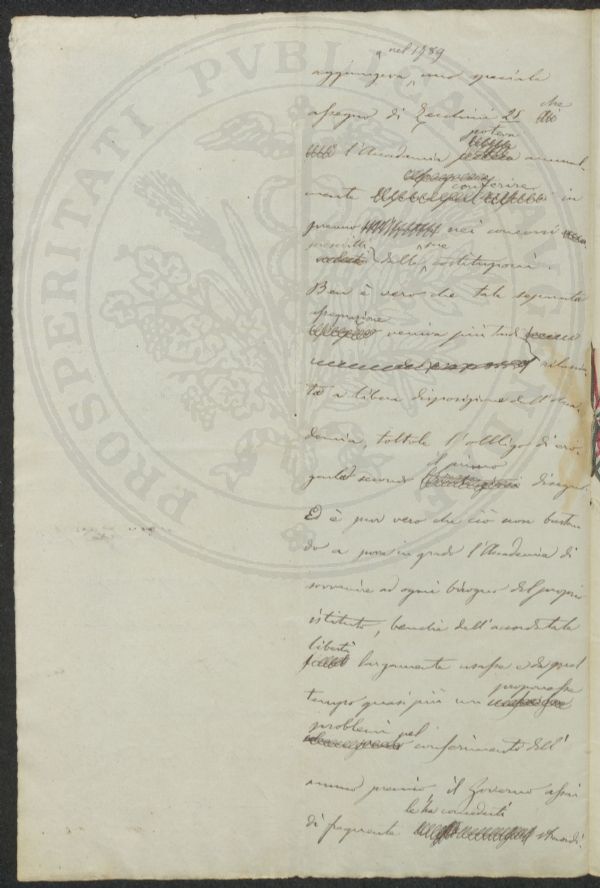 PROSPERITATI PVBLICAE AVGENDAE
nel 1789
aggiungeva, uno speciale
assegno di Zecchini 25 che
l'Accademia poteva annual-
mente conferire in
premio nei concorsi
prescritti dalle sue costituzioni.
Ben è vero che tale separata
assegnazione veniva più tardi
rilascia
ta a libera disposizione dell'Acca-
demia, toltole l'obbligo di ero-
garla secondo il primo disegno.
Ed è pur vero che ciò non bastan-
do a porre in grado l'Accademia di
sovvenire ad ogni bisogno del proprio
istituto, benchè dell'accordatale
libertà largamente usasse e da quel
tempo quasi più non proponesse
problemi pel conferimento dell'
annuo premio, il Governo assai
di frequente le ha conceduti straordi-